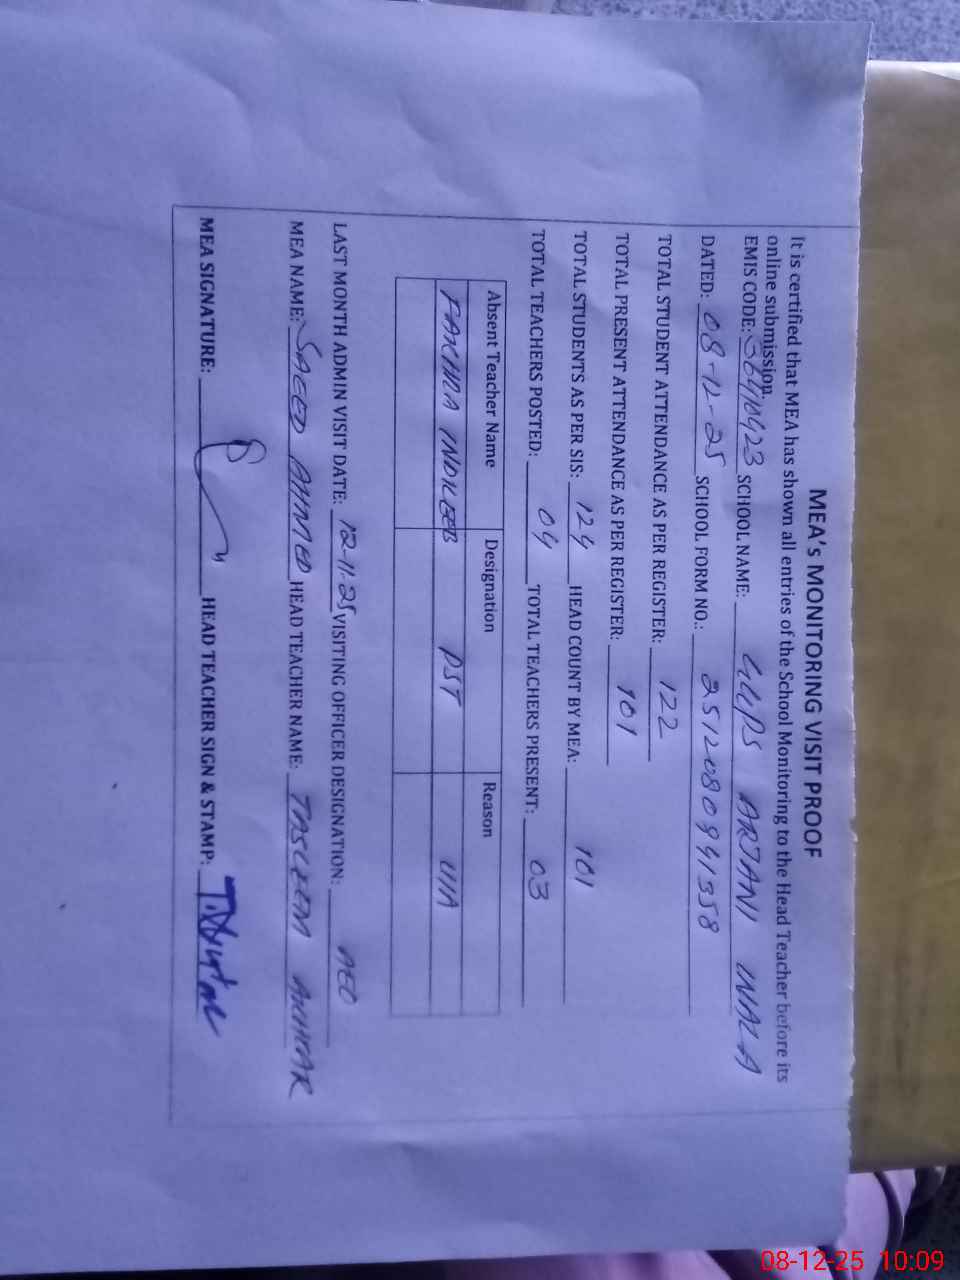 MEA's MONITORING VISIT PROOF
It is certified that MEA has shown all entries of the School Monitoring to the Head Teacher before its
online submission.
EMIS CODE: 36410423 SCHOOL NAME: GGPS ARJANI WALA
DATED: 08-12-25 SCHOOL FORM NO.: 251208091358
TOTAL STUDENT ATTENDANCE AS PER REGISTER: 122
TOTAL PRESENT ATTENDANCE AS PER REGISTER: 101
TOTAL STUDENTS AS PER SIS: 124 HEAD COUNT BY MEA: 101
TOTAL TEACHERS POSTED: 04 TOTAL TEACHERS PRESENT: 03
Absent Teacher Name Designation Reason
PST
LAST MONTH ADMIN VISIT DATE: 12-11-25 VISITING OFFICER DESIGNATION: AEO
MEA NAME: SAEED AHMED HEAD TEACHER NAME: TASLEEM AKHTAR
MEA SIGNATURE: HEAD TEACHER SIGN & STAMP:
08-12-25 10:09